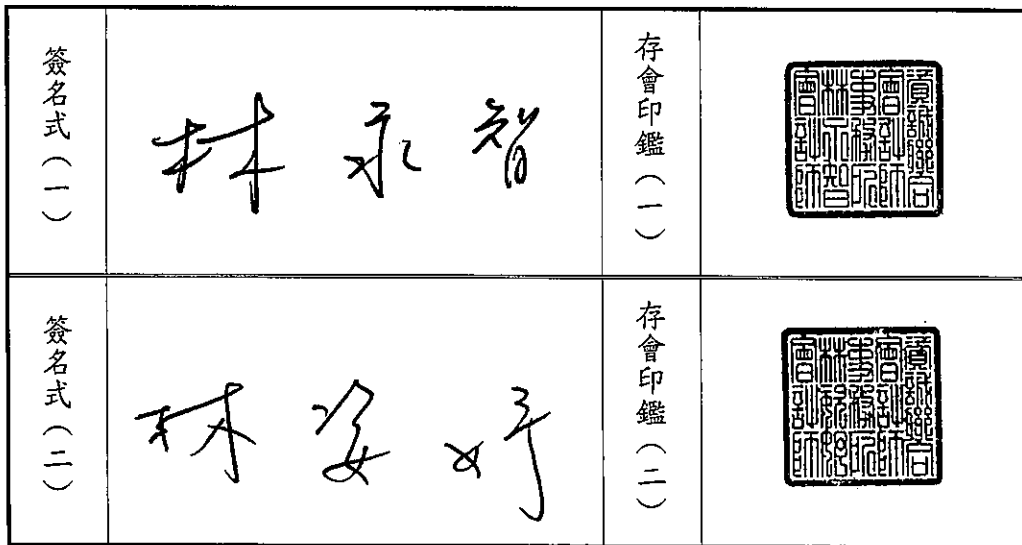 簽名式（一）
林永智
存會印鑑（一）
資誠聯合
會計師
事務所
林永智
會計師
簽名式（二）
林姿妤
存會印鑑（二）
資誠聯合
會計師
事務所
林姿妤
會計師